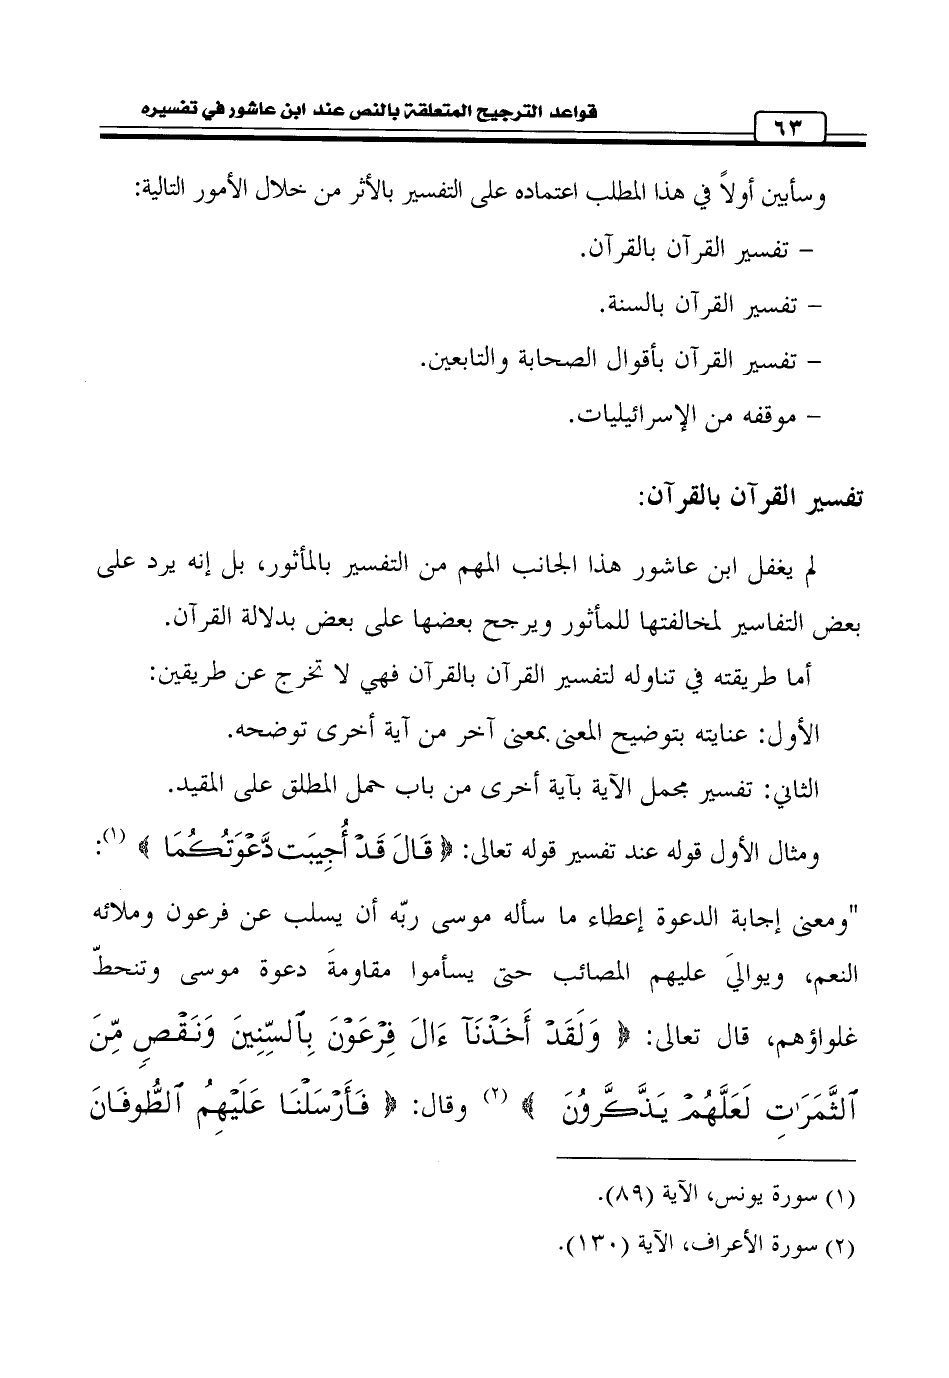 قواعد الترجيح المتعلقة بالنص عند ابن عاشور في تفسيره
٦٣
وسأبين أولاً في هذا المطلب اعتماده على التفسير بالأثر من خلال الأمور التالية:
– تفسير القرآن بالقرآن.
– تفسير القرآن بالسنة.
– تفسير القرآن بأقوال الصحابة والتابعين.
– موقفه من الإسرائيليات.
تفسير القرآن بالقرآن:
لم يغفل ابن عاشور هذا الجانب المهم من التفسير بالمأثور، بل إنه يرد على
بعض التفاسير لمخالفتها للمأثور ويرجح بعضها على بعض بدلالة القرآن.
أما طريقته في تناوله لتفسير القرآن بالقرآن فهي لا تخرج عن طريقين:
الأول: عنايته بتوضيح المعنى بمعنى آخر من آية أخرى توضحه.
الثاني: تفسير مجمل الآية بآية أخرى من باب حمل المطلق على المقيد.
ومثال الأول قوله عند تفسير قوله تعالى: ﴿ قَالَ قَدْ أُجِيبَت دَّعْوَتُكُمَا ﴾ (١):
"ومعنى إجابة الدعوة إعطاء ما سأله موسى ربّه أن يسلب عن فرعون وملائه
النعم، ويواليَ عليهم المصائب حتى يسأموا مقاومةَ دعوة موسى وتنحطّ
غلواؤهم، قال تعالى: ﴿ وَلَقَدْ أَخَذْنَآ ءَالَ فِرْعَوْنَ بِٱلسِّنِينَ وَنَقْصٍ مِّنَ
ٱلثَّمَرَٰتِ لَعَلَّهُمْ يَذَّكَّرُونَ ﴾ (٢) وقال: ﴿ فَأَرْسَلْنَا عَلَيْهِمُ ٱلطُّوفَانَ
(١) سورة يونس، الآية (٨٩).
(٢) سورة الأعراف، الآية (١٣٠).